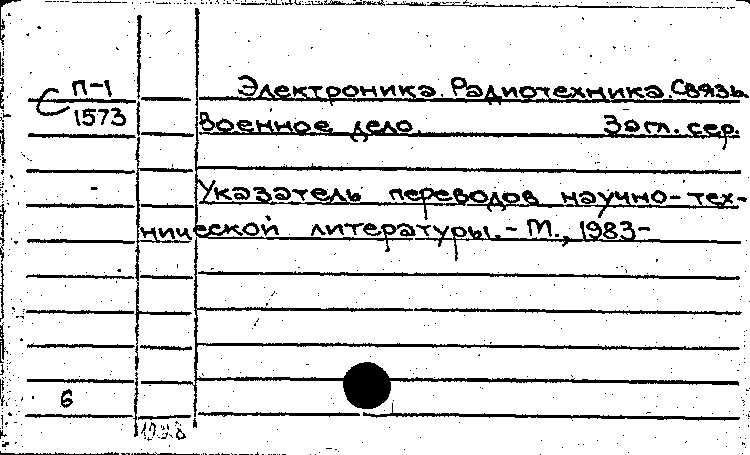 С П-1
1573
Электроника. Радиотехника. Связь.
Военное дело. Загл. сер.
Указатель переводов научно-тех-
нической литературы. - М., 1983-
6